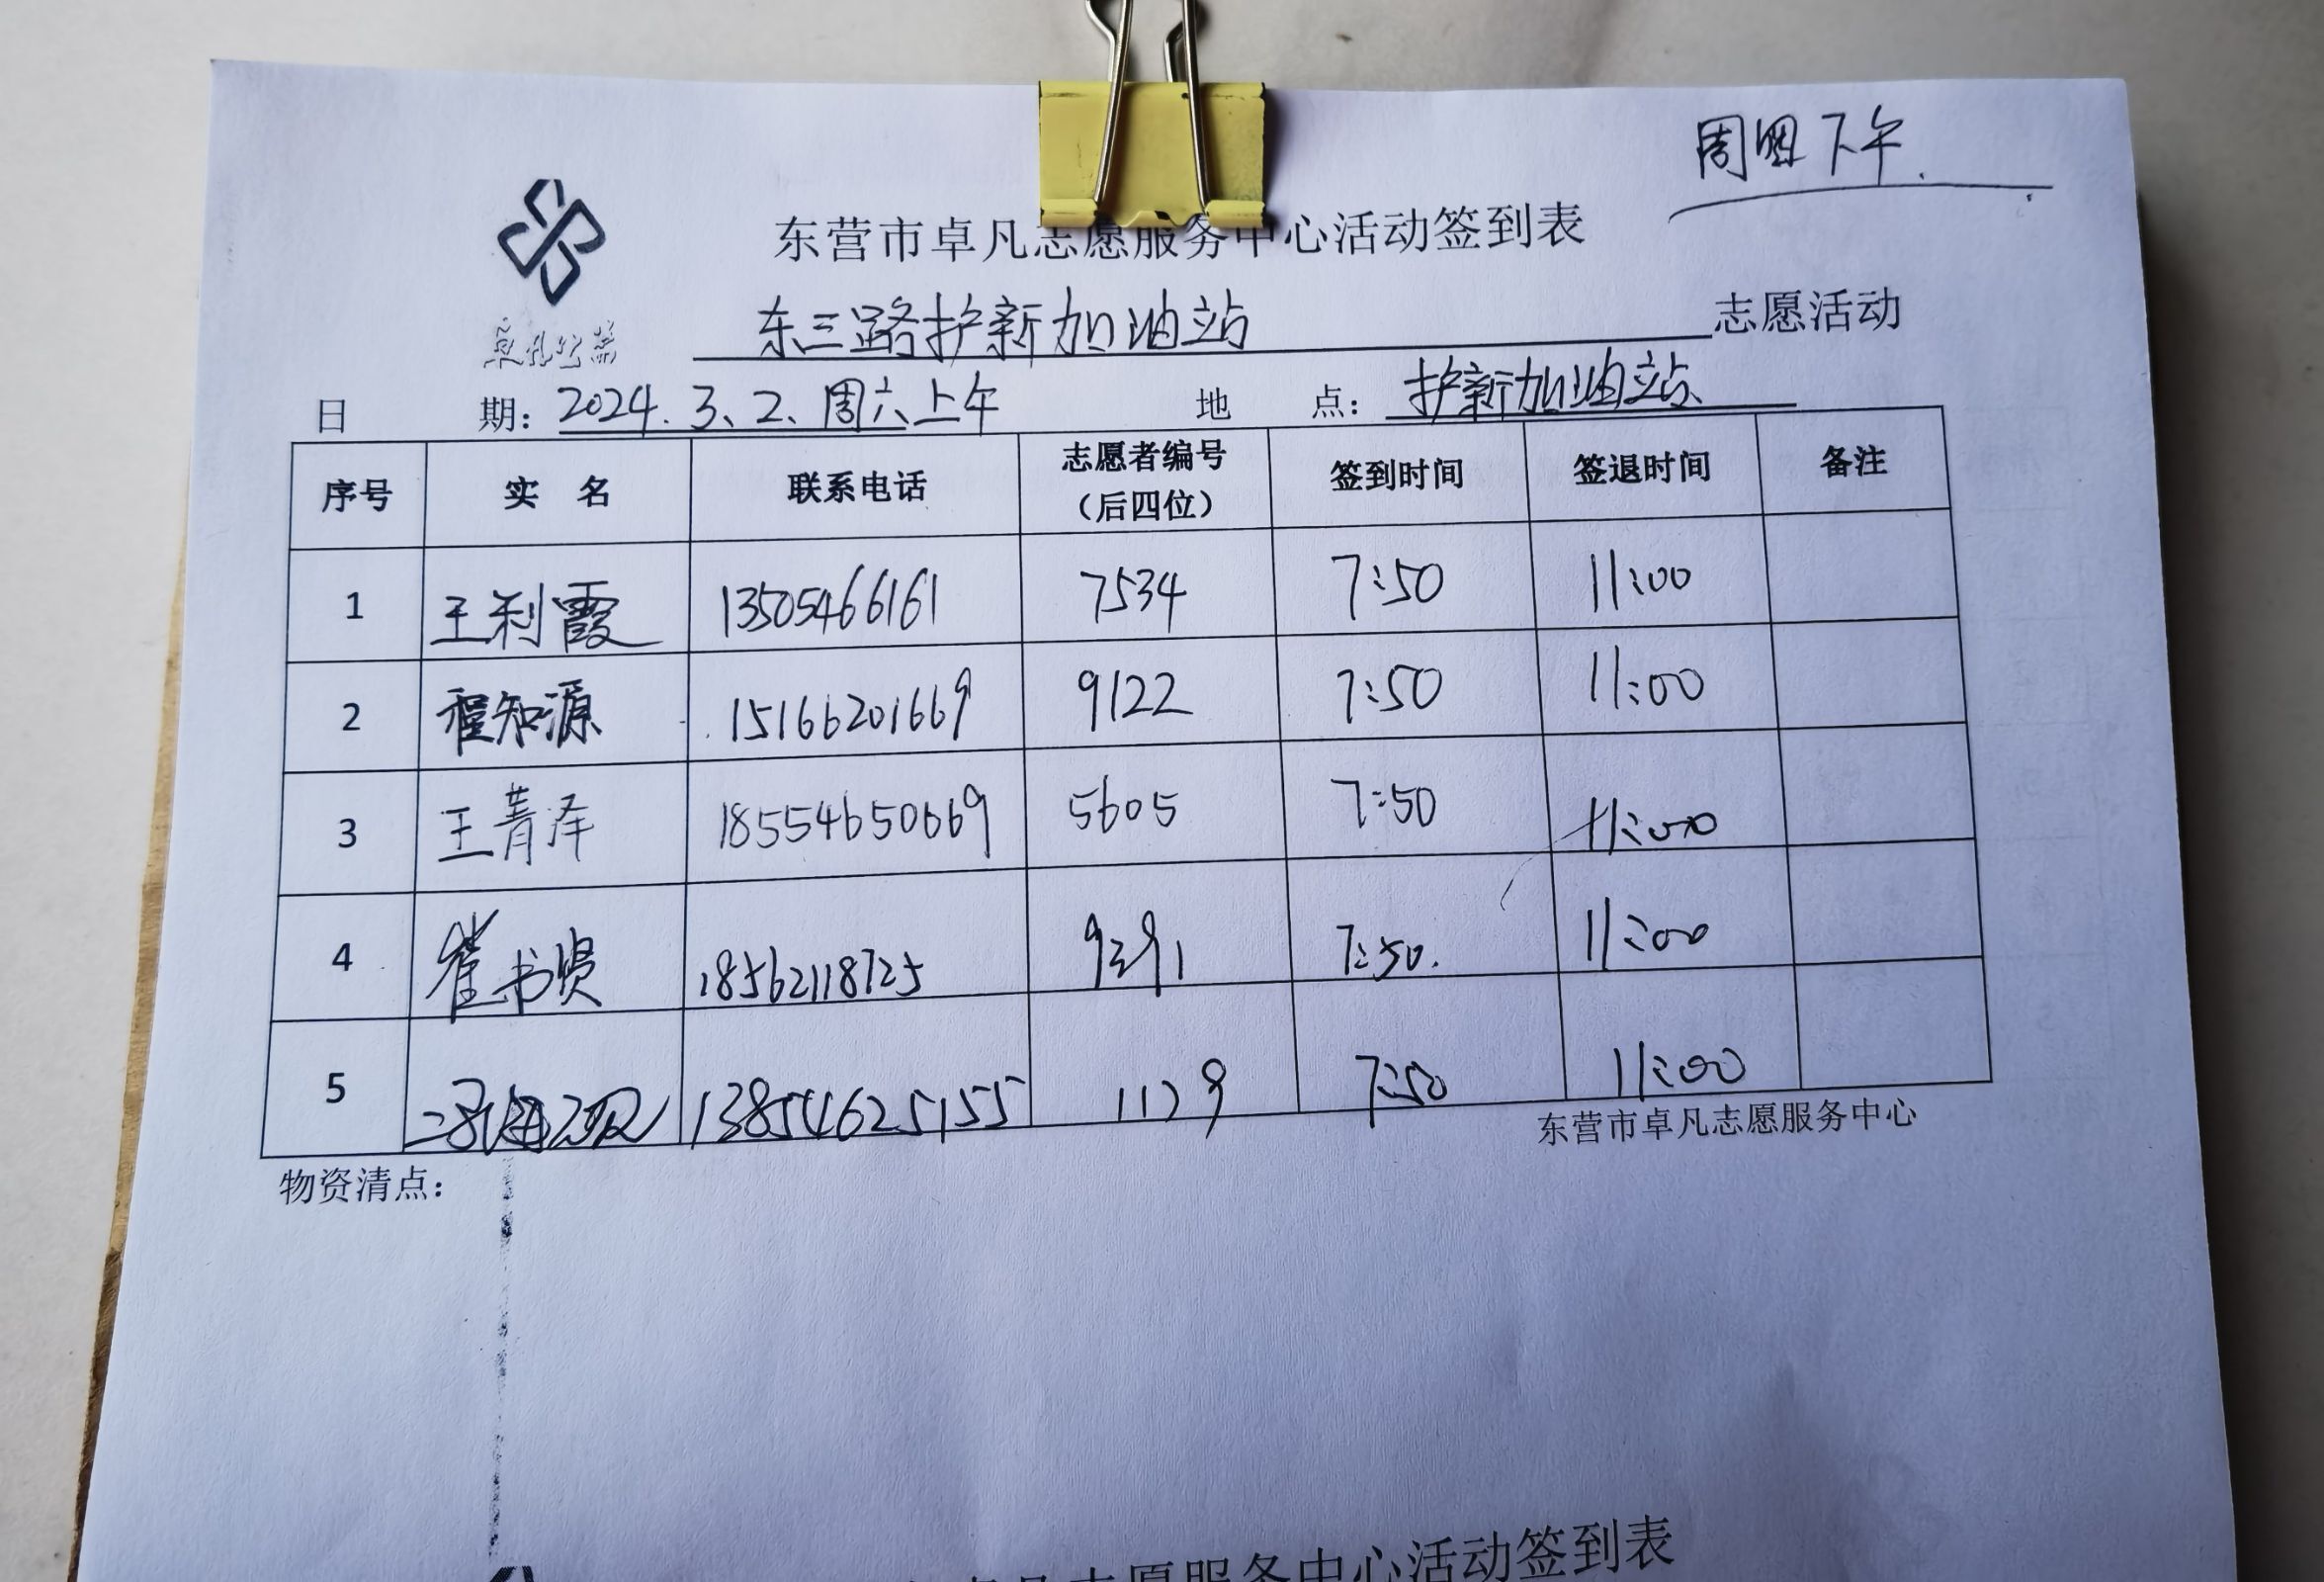 周四下午.
东营市卓凡志愿服务中心活动签到表
卓凡公益
东三路护新加油站 志愿活动
日 期: 2024.3、2、周六上午 地 点: 护新加油站
序号 实 名 联系电话 志愿者编号（后四位） 签到时间 签退时间 备注
1 王利霞 13505466161 7534 7:50 11:00
2 程知源 15166201669 9122 7:50 11:00
3 王菁泽 18554650669 5605 7:50 11:00
4 崔书贤 18562118725 9291 7:50. 11:00
5 13854625155 1129 7:50 11:00
东营市卓凡志愿服务中心
物资清点:
卓凡志愿服务中心活动签到表